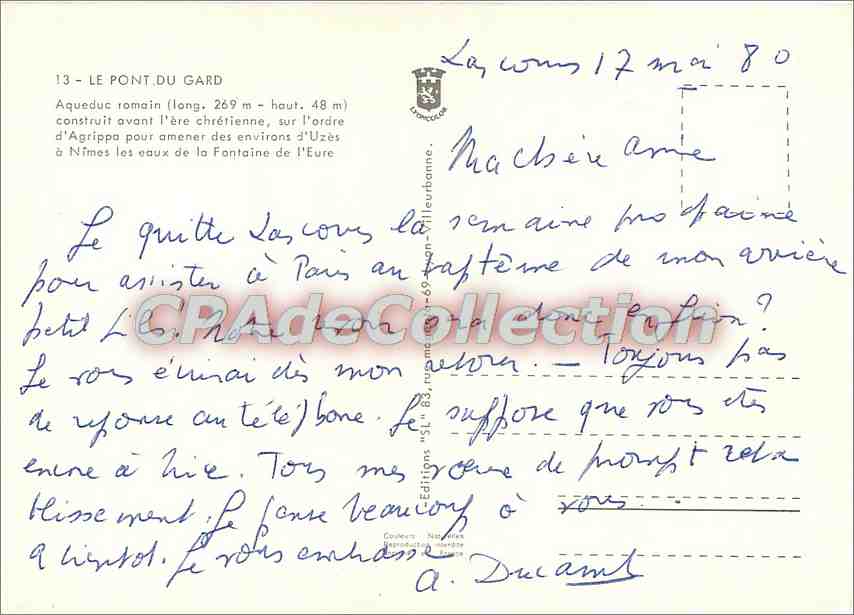 13 - LE PONT DU GARD
Aqueduc romain (long. 269 m - haut. 48 m)
construit avant l'ère chrétienne, sur l'ordre
d'Agrippa pour amener des environs d'Uzès
à Nîmes les eaux de la Fontaine de l'Eure
LYONCOLOR
Editions "SL" 83, rue 69 -Villeurbanne.
Couleurs Naturelles
Reproduction interdite
France
Lascours 17 mai 80
Ma chère amie
Je quitte Lascours la semaine prochaine
pour assister à Paris au baptême de mon arrière
petit fils. Notre sera donc ?
Je vous écrirai dès mon retour. — Toujours pas
de reponse au téléphone. Je suppose que vous etes
encore à Nice. Tous mes voeux de prompt reta
blissement. Je pense beaucoup à vous...
a bientot. Je vous embrasse
A.
CPAdeCollection